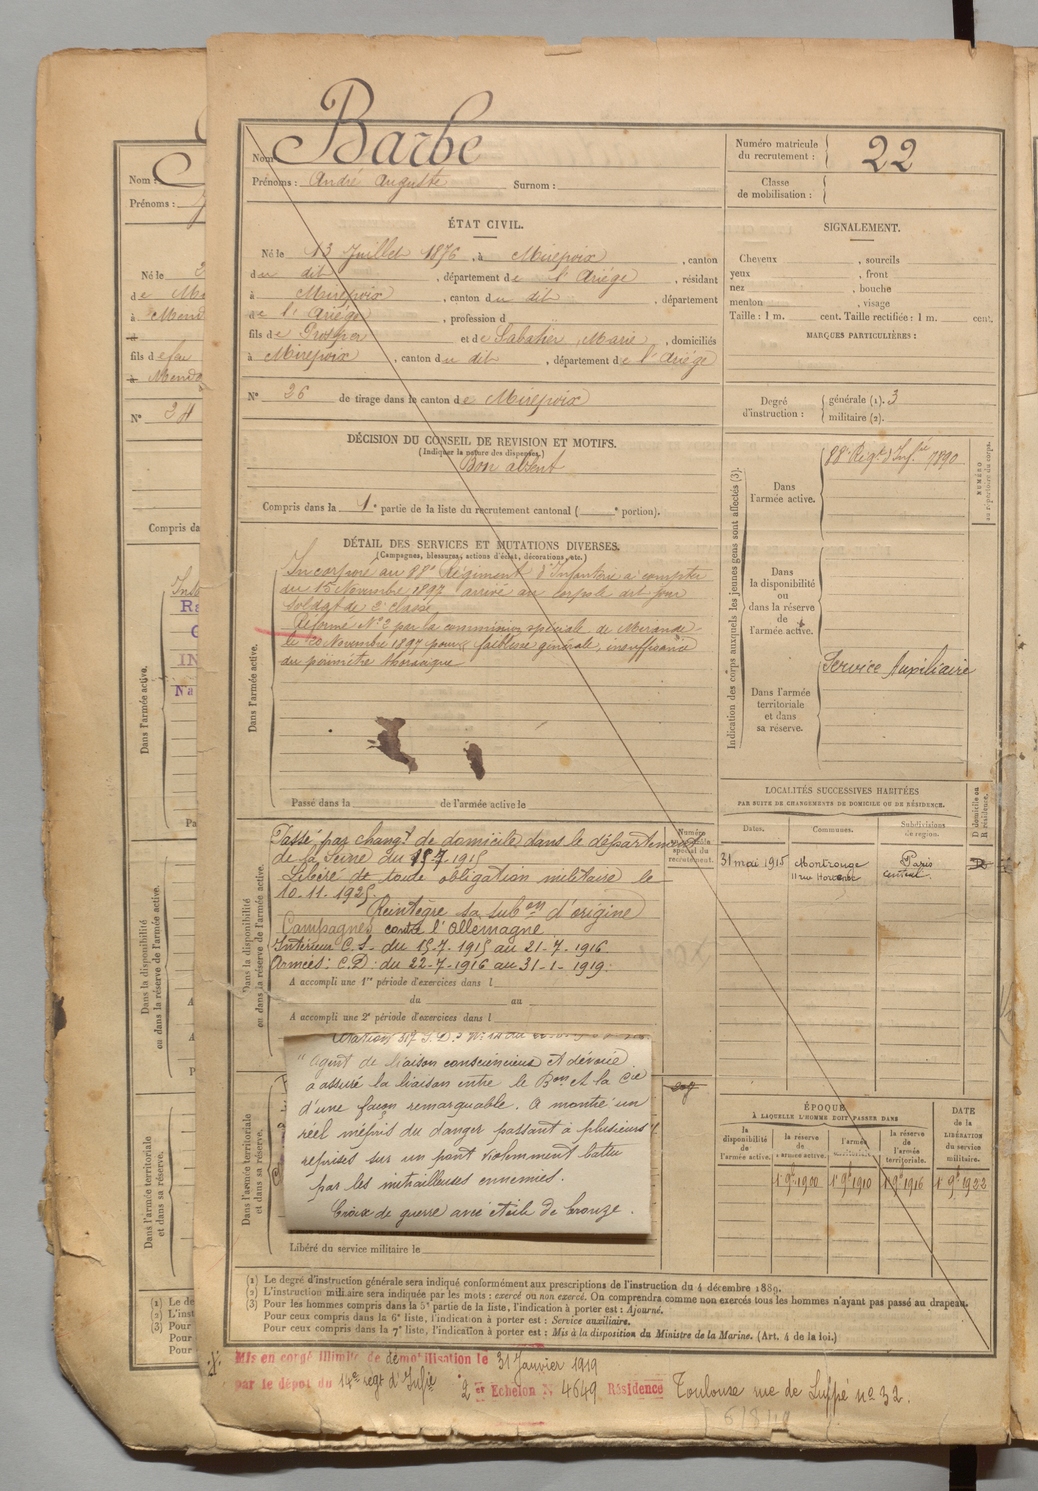 Barbe
Nom :
Prénoms : André Auguste Surnom :
Numéro matricule du recrutement : 22
Classe de mobilisation :
ÉTAT CIVIL.
Né le 13 Juillet 1876, à Mirepoix, canton
du dit, département de l'Ariége, résidant
à Mirepoix, canton du dit, département
de l'Ariége, profession d
fils de Prosper et de Sabatier Marie, domiciliés
à Mirepoix, canton du dit, département de l'Ariége
N° 26 de tirage dans le canton de Mirepoix
SIGNALEMENT.
Cheveux , sourcils
yeux , front
nez , bouche
menton , visage
Taille : 1 m. cent. Taille rectifiée : 1 m. cent.
MARQUES PARTICULIÈRES :
Degré d'instruction : générale (1). 3
militaire (2).
DÉCISION DU CONSEIL DE REVISION ET MOTIFS.
(Indiquer la nature des dispenses.)
Bon absent
Compris dans la 1e partie de la liste du recrutement cantonal ( e portion).
DÉTAIL DES SERVICES ET MUTATIONS DIVERSES.
(Campagnes, blessures, actions d'éclat, décorations, etc.)
Dans l'armée active.
Incorporé au 88e Régiment d'Infanterie à compter
du 15 Novembre 1897 arrivé au corps le dit jour
soldat de 2e classe,
Réformé N° 2 par la commission spéciale de Mirande
le 20 Novembre 1897 pour faiblesse générale, insuffisance
du périmètre thoracique
Passé dans la de l'armée active le
Indication des corps auxquels les jeunes gens sont affectés (3).
NUMÉRO au répertoire du corps.
Dans l'armée active.
88e Régt d'Infie 1890
Dans la disponibilité ou dans la réserve de l'armée active.
Dans l'armée territoriale et dans sa réserve.
Service Auxiliaire
LOCALITÉS SUCCESSIVES HABITÉES
PAR SUITE DE CHANGEMENTS DE DOMICILE OU DE RÉSIDENCE.
Dates. Communes. Subdivisions de région. D domicile ou R résidence.
31 mai 1915 Montrouge Paris
11 rue Hortense central.
Dans la disponibilité ou dans la réserve de l'armée active.
Passé par changt de domicile dans le département
de la Seine du 15.7.1915
Libéré de toute obligation militaire le
10.11.1925.
Réintègre sa subon d'origine
Campagnes contre l'Allemagne
Intérieur C.S. du 15-7-1915 au 21-7-1916
Armées : C.D : du 22-7-1916 au 31-1-1919.
A accompli une 1re période d'exercices dans l
du au
A accompli une 2e période d'exercices dans l
Dans l'armée territoriale et dans sa réserve.
"Agent de liaison consciencieux et dévoué
a assuré la liaison entre le Bon et la Cie
d'une façon remarquable. A montré un
réel mépris du danger passant à plusieurs
reprises sur un pont violemment battu
par les mitrailleuses ennemies.
Croix de guerre avec étoile de bronze.
Libéré du service militaire le
ÉPOQUE
À LAQUELLE L'HOMME DOIT PASSER DANS
la disponibilité de l'armée active. la réserve de l'armée active. l'armée territoriale. la réserve de l'armée territoriale.
DATE de la LIBÉRATION du service militaire.
1er 9bre 1900 1er 9bre 1910 1er 9bre 1916 1er 9bre 1922
(1) Le degré d'instruction générale sera indiqué conformément aux prescriptions de l'instruction du 4 décembre 1889.
(2) L'instruction militaire sera indiquée par les mots : exercé ou non exercé. On comprendra comme non exercés tous les hommes n'ayant pas passé au drapeau.
(3) Pour les hommes compris dans la 5e partie de la liste, l'indication à porter est : Ajourné.
Pour ceux compris dans la 6e liste, l'indication à porter est : Service auxiliaire.
Pour ceux compris dans la 7e liste, l'indication à porter est : Mis à la disposition du Ministre de la Marine. (Art. 4 de la loi.)
Mis en congé illimité de démobilisation le 31 Janvier 1919
par le dépot du 14e regt d'Infie 2 er Echelon N° 4649 Résidence Toulouse rue de Luppé no 32.
Nom :
Prénoms :
Né le
fils de
N° 34
Compris da
Dans l'armée active.
Dans la disponibilité ou dans la réserve de l'armée active.
Dans l'armée territoriale et dans sa réserve.
(1) Le de
(2) L'inst
(3) Pour
Pour
Pour